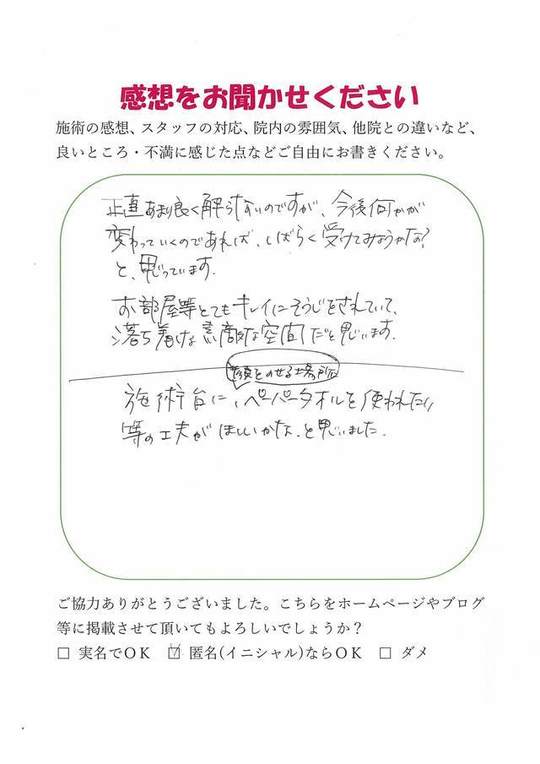 感想をお聞かせください
施術の感想、スタッフの対応、院内の雰囲気、他院との違いなど、
良いところ・不満に感じた点などご自由にお書きください。
正直あまり良く解らないのですが、今後何かが
変わっていくのであれば、しばらく受けてみようかな?
と、思っています。
お部屋等とてもキレイにそうじをされていて、
落ち着ける素敵な空間だと思います。
頭をのせる場所
施術台に、ペーパータオルを使われたり
等の工夫がほしいかな、と思いました。
ご協力ありがとうございました。こちらをホームページやブログ
等に掲載させて頂いてもよろしいでしょうか?
□ 実名でOK ☑ 匿名(イニシャル)ならOK □ ダメ